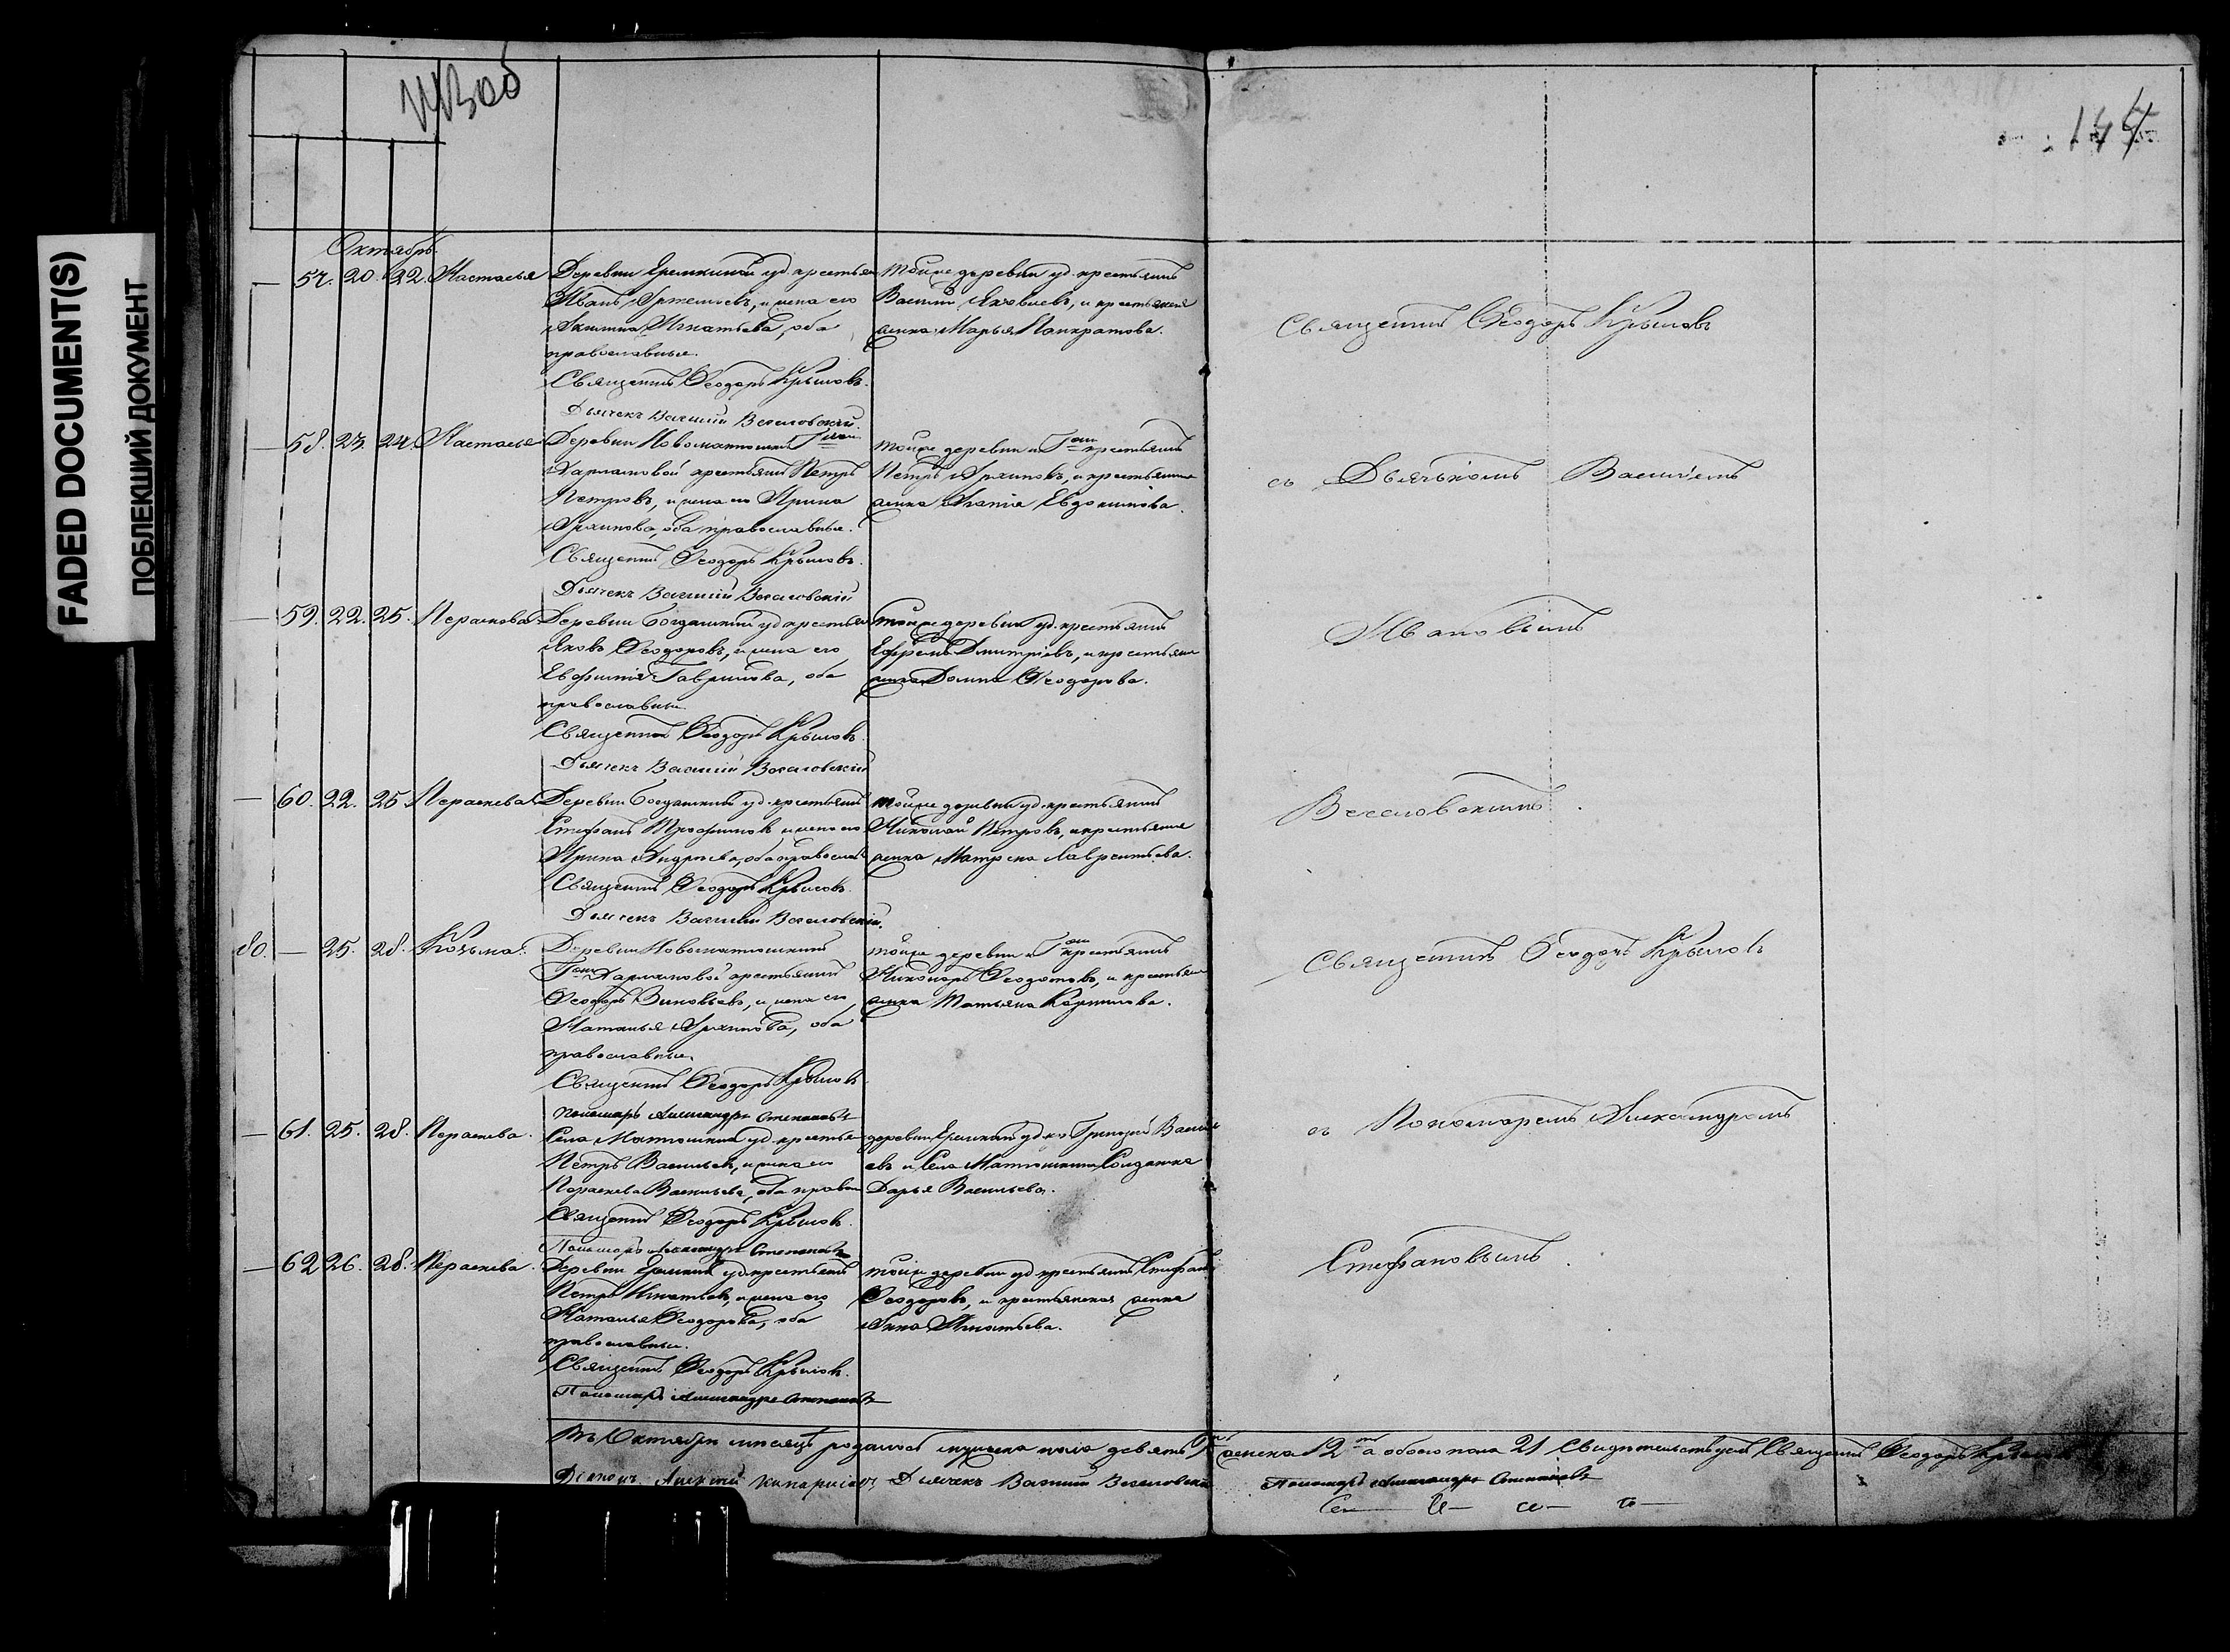 FADED DOCUMENT(S)
ПОБЛЕКШИЙ ДОКУМЕНТ
144
Октябрь.
57. 20. 22. Настасья
Деревни Еремкиной уд. крестьян
Иванъ Артемьевъ, и жена его
Акилина Игнатьева, оба
православные.
Священникъ Ѳеодоръ Крыловъ.
Дьячекъ Василий Веселовский.
тойже деревни уд. крестьянинъ
Василий Яковлевъ, и крестьянская
женка Марья Панкратова.
Священникъ Ѳеодоръ Крыловъ
58. 23. 24. Настасья
Деревни Новоматюшкиной
Харламовой крестьянинъ Петръ
Петровъ, и жена его Ирина
Архипова, оба православные.
Священникъ Ѳеодоръ Крыловъ.
Дьячекъ Василий Веселовский
тойже деревни и Гжи крестьянинъ
Петръ Архиповъ, и крестьянская
женка Агапия Евдокимова.
съ Дьячькомъ Василiемъ
59. 22. 25. Параскева
Деревни Богдашкиной уд крестьян
Яковъ Ѳеодоровъ, и жена его
Евфимiя Гаврилова, оба
православные.
Священникъ Ѳеодоръ Крыловъ.
Дьячекъ Василий Веселовский
тойже деревни уд. крестьянинъ
Ефремъ Дмитрiевъ, и крестьян
женка Домна Ѳеодорова.
Ивановымъ
60. 22. 25. Параскева
Деревни Богдашкиной уд. крестьянинъ
Стефанъ Трофимовъ и жена его
Ирина Андреева, оба православн
Священникъ Ѳеодоръ Крыловъ.
Дьячекъ Василий Веселовский.
тойже деревни уд. крестьянинъ
Николай Петровъ, и крестьянская
женка Матрена Лаврентьева.
Веселовскимъ.
80. — 25. 28. Козьма.
Деревни Новоматюшкиной
Гжи Харламовой крестьянинъ
Ѳеодоръ Зиновьевъ, и жена его
Наталья Архипова, оба
православные.
Священникъ Ѳеодоръ Крыловъ.
Пономарь Александръ Стефановъ
тойже деревни и Гжи крестьянинъ
Никаноръ Ѳеодотовъ, и крестьян
женка Татьяна Корнилова.
Священникъ Ѳеодоръ Крыловъ
61. 25. 28. Параскева.
Села Матюшкина уд. крестьян
Петръ Васильевъ, и жена его
Параскева Васильева, оба правосл
Священникъ Ѳеодоръ Крыловъ.
Пономарь Александръ Стефановъ
деревни Еремкиной уд. кр. Григорий Василь
евъ и Села Матюшкина Солдатка
Дарья Васильева.
съ Пономаремъ Александромъ
62 26. 28. Параскева.
Деревни Еремкиной уд. крестьянинъ
Петръ Игнатьевъ, и жена его
Наталья Ѳеодорова, оба
православные.
Священникъ Ѳеодоръ Крыловъ.
Пономарь Александръ Стефановъ
тойже деревни уд крестьянинъ Стефанъ
Ѳеодоровъ, и крестьянская женка
Анна Игнатьева.
Стефановымъ.
Въ Октябрѣ мѣсяцѣ родилось мужеска пола девять 9 женска 12 а обоего пола 21 Свидетельствуемъ Священникъ Ѳеодоръ Крыловъ
Дiаконъ Алексiй Кипарисовъ Дьячекъ Василий Веселовский Пономарь Александръ Стефановъ